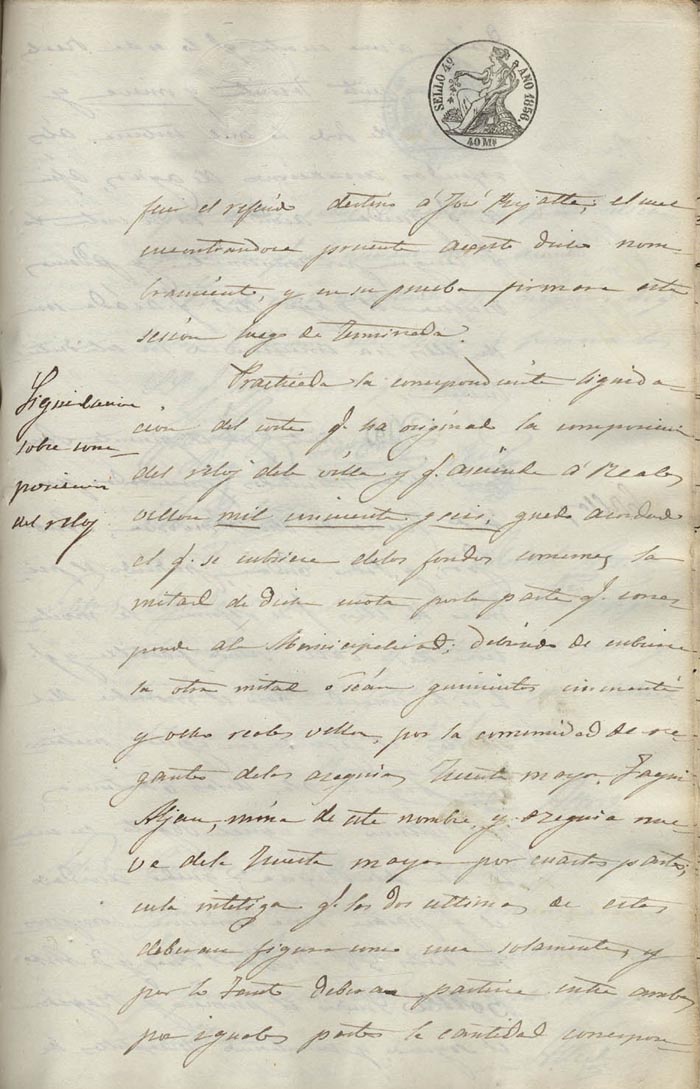 SELLO 4º AÑO 1856.
40 Ms
el referido destino á José; el
encontrandose presente acepto dicho nom
bramiento, y en su prueba firmara esta
sesion luego de terminada.
Liquidacion
sobre com
posicion
del reloj
Practicada la correspondiente liquida
cion del coste q. ha originado la composicion
del reloj dela villa y q. asciende á Reales
vellon mil cincuenta y seis, quedó acordado
el q. se cubriese delos fondos comunes la
mitad de dicha cuota por la parte q. corres
ponde a la Municipalidad; debiendo de cubrirse
la otra mitad o sean quinientos cincuenta
y ocho reales vellon, por la comunidad de re
gantes delas acequias Fuente mayor,
mina de este nombre, y acequia nue
va dela Fuente mayor por cuartas partes,
en la inteliga q. las dos ultimas de estas
deberan figurar como una solamente, y
por lo tanto deberan partirse entre ambas
por iguales partes la cantidad correspon